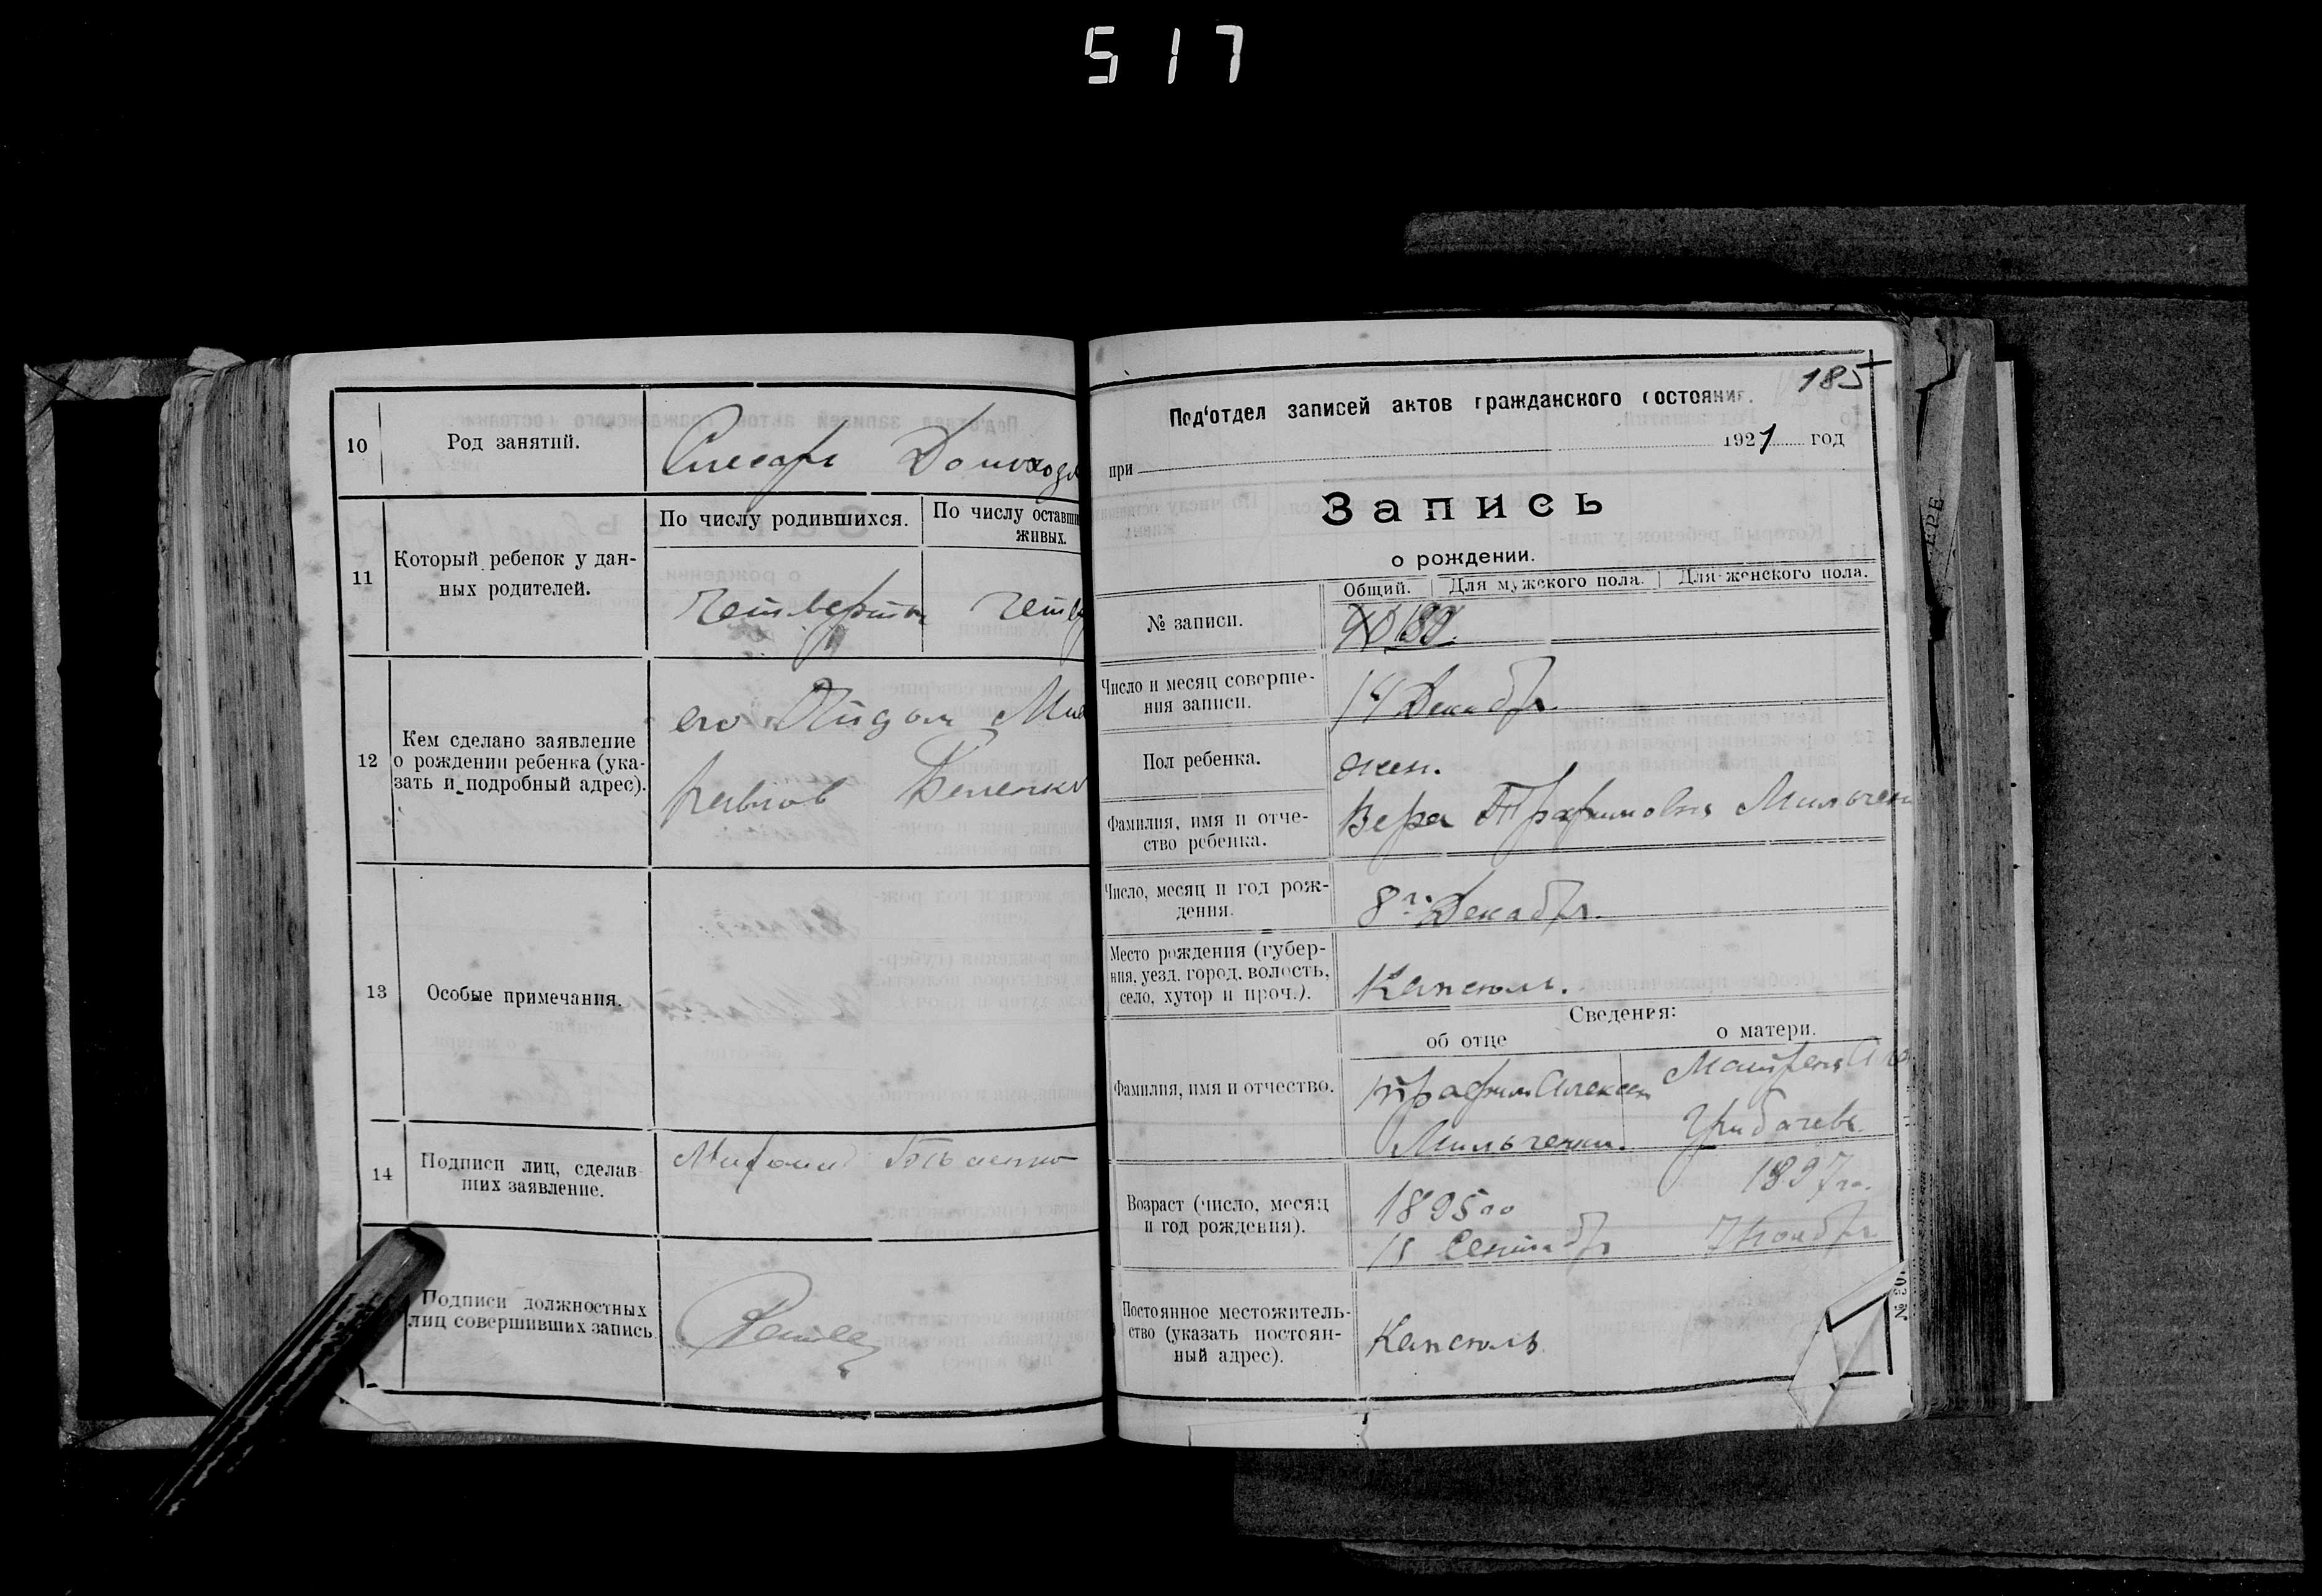 517
10 Род занятий. Слесарь Домохозя
11 Который ребенок у дан-
ных родителей.
По числу родившихся. По числу оставши
живых.
четвертый четве
12 Кем сделано заявление
о рождении ребенка (ука-
зать и подробный адрес).
его
13 Особые примечания.
14 Подписи лиц, сделав
ших заявление.
Подписи должностных
лиц совершивших запись
185
Под'отдел записей актов гражданского состояния.
при 1921 год
Запись
о рождении.
Общий. Для мужского пола. Для женского пола.
№ записи. 189.
Число и месяц соверше-
ния записи.
14 Декабр.
Пол ребенка. жен.
Фамилия, имя и отче-
ство ребенка.
Вера Трафимовна Мильчен
Число, месяц и год рож-
дения.
8го Декабр.
Место рождения (губер-
ния, уезд, город, волость,
село, хутор и проч.).
Капсюль.
Сведения:
об отце о матери.
Фамилия, имя и отчество.
Трафим Алексеев
Мильченко.
Матрена
Грибачева
Возраст (число, месяц
и год рождения).
1895го
15 Сентябр
1897го.
7 Ноябр
Постоянное местожитель-
ство (указать постоян-
ный адрес).
Капсюль